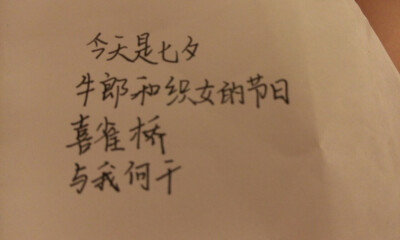 今天是七夕
牛郎和织女的节日
喜雀桥
与我何干